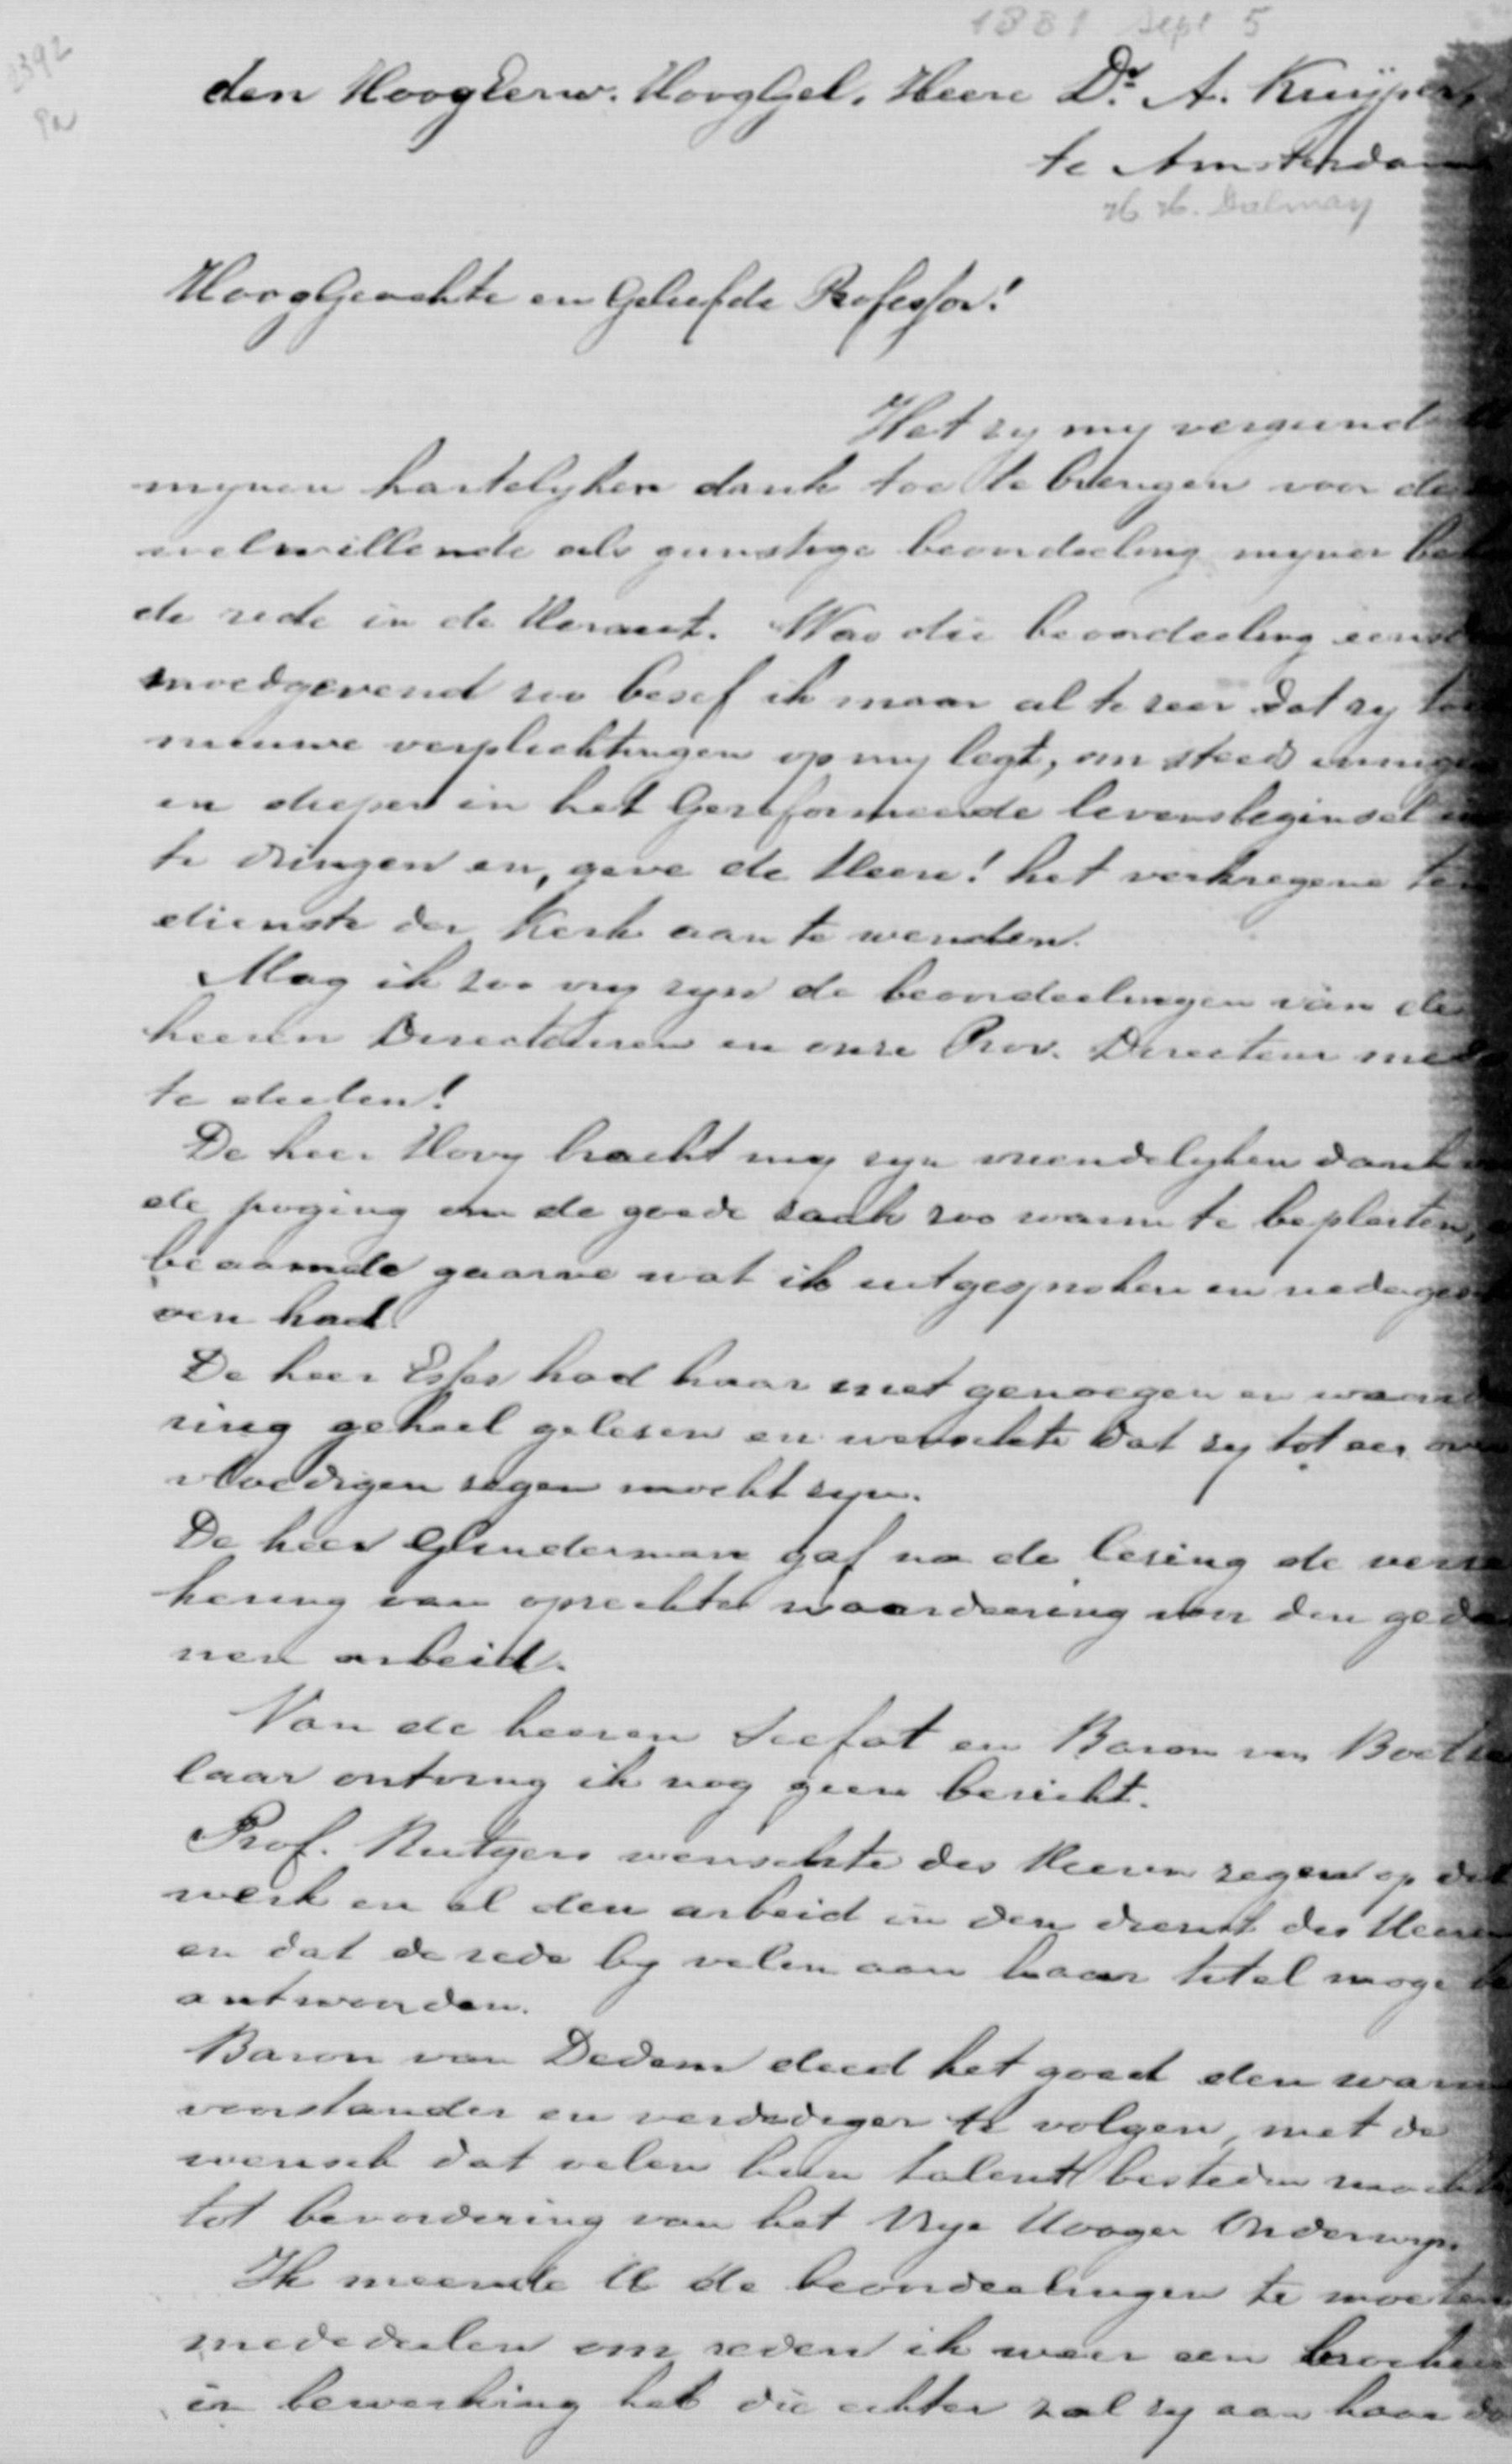 1881 Sept 5
2392
den HoogEerw. HoogGel. Heere Dr. A. Kuÿper,
te Amsterdam
H. H. Dalmay
HoogGeachte en Geliefde Professor!
Het zy my vergund
mynen hartelyken dank toe te brengen voor de
welwillende als gunstige beoordeeling myner
de rede in de Heraut. Was die beoordeeling
moedgevend zoo besef ik maar al te zeer dat zy
nieuwe verplichtingen op my legt, om steeds inniger
en dieper in het Gereformeerde levensbeginsel
te dringen en, geve de Heere! het verkregene ten
dienste der Kerk aan te wenden.
Mag ik zoo vry zyn de beoordeelingen van de
heeren Directeuren en onze Prov. Directeur mede
te deelen!
De heer Hovy bracht my zyn vriendelyken dank
de poging om de goede zaak zoo warm te bepleiten,
beaamde gaarne wat ik uitgesproken en
ven had.
De heer Esser had haar met genoegen en
ring geheel gelezen en wenschte dat zy tot een
vloedigen zegen mocht zyn.
De heer Glinderman gaf na de lezing de verze
kering van oprechte waardeering voor den geda
nen arbeid.
Van de heeren Seefat en Baron van
laar ontving ik nog geen bericht.
Prof. Rutgers wenschte des Heeren zegen op dit
werk en al den arbeid in den dienst des Heeren
en dat de rede by velen aan haar titel moge
antwoorden.
Baron van Dedem deed het goed den warmen
voorstander en verdediger te volgen, met de
wensch dat velen hun talent besteden mochten
tot bevordering van het Vrye Hooger Onderwys.
Ik meende U de beoordeelingen te moeten
mededeelen om reden ik weer een brochure
in bewerking heb die echter zal zy aan haar